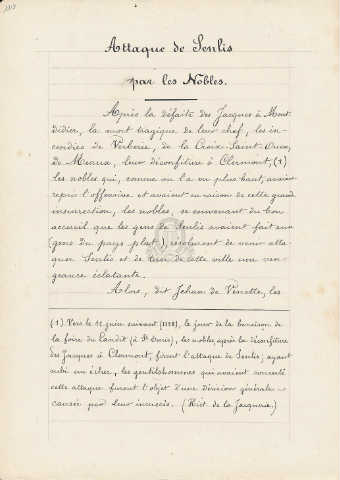 Attaque de Senlis
par les Nobles.
Après la défaite des Jacques à Mont
didier, la mort tragique de leur chef, les in-
cendies de Verberie, de la Croix-Saint-Ouen,
de Meaux, leur déconfiture à Clermont, (1)
les nobles qui, comme on l'a vu plus haut, avaient
repris l'offensive et avaient eu raison de cette grande
insurrection, les nobles, se souvenant du bon
accueil que les gens de Senlis avaient fait aux
(gens du pays plat), résolurent de venir atta
quer Senlis et de tirer de cette ville une ven-
geance éclatante.
Alors, dit Jehan de Venette, les
(1) Vers le 11 juin suivant (1358), le jour de la
la foire du Landit (à St Denis), les nobles, après la déconfiture
des Jacques à Clermont, firent l'attaque de Senlis; ayant
subi un échec, les gentilshommes qui avaient concerté
cette attaque furent l'objet d'une dérision générale
causée par leur insuccès. (Hist. de la Jacquerie.)